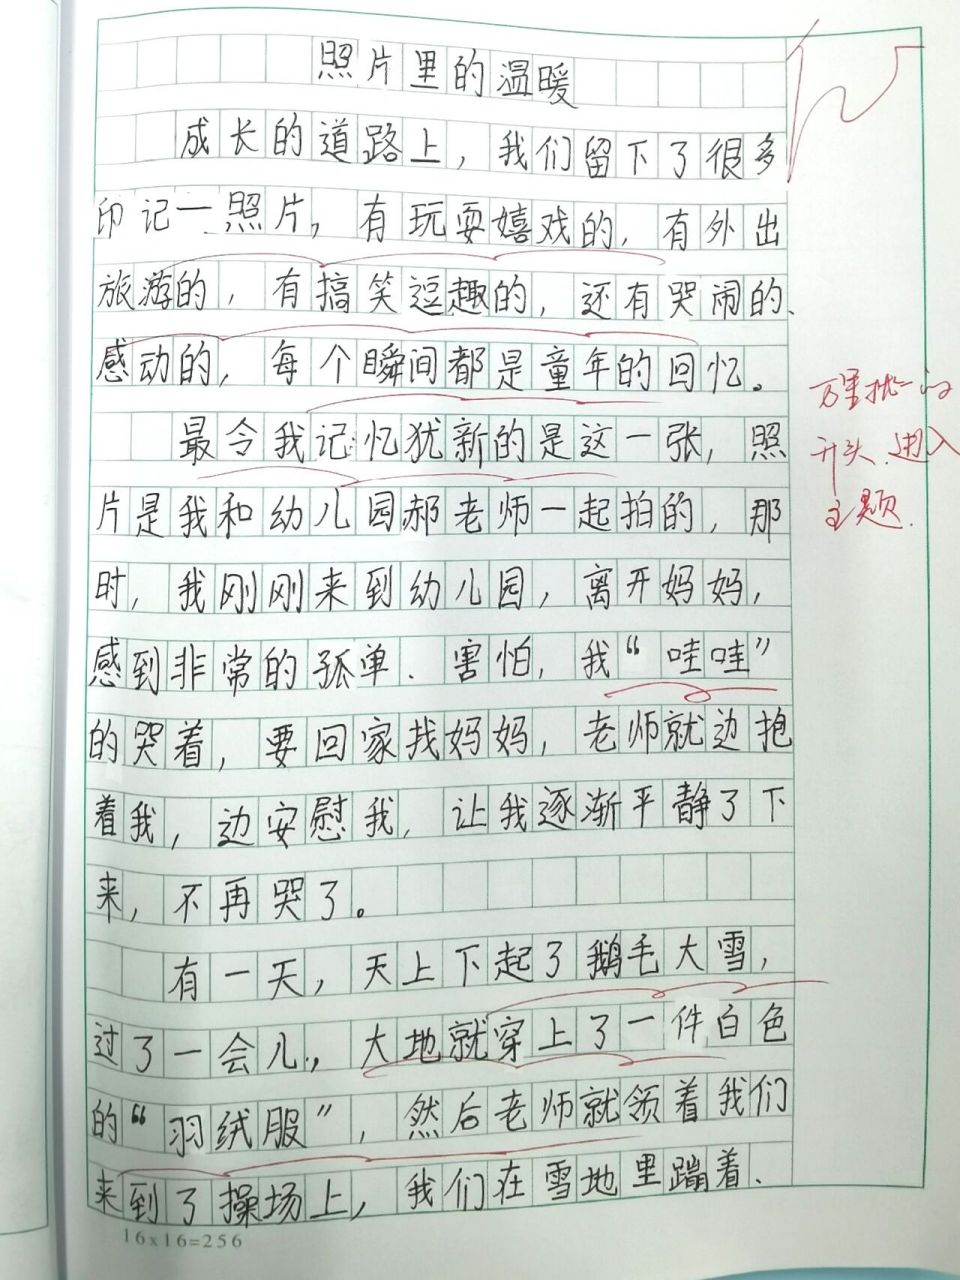 照片里的温暖
成长的道路上，我们留下了很多
印记一照片，有玩耍嬉戏的，有外出
旅游的，有搞笑逗趣的，还有哭闹的、
感动的，每个瞬间都是童年的回忆。
最令我记忆犹新的是这一张，照
片是我和幼儿园郝老师一起拍的，那
时，我刚刚来到幼儿园，离开妈妈，
感到非常的孤单、害怕，我“哇哇”
的哭着，要回家找妈妈，老师就边抱
着我，边安慰我，让我逐渐平静了下
来，不再哭了。
有一天，天上下起了鹅毛大雪，
过了一会儿，大地就穿上了一件白色
的“羽绒服”，然后老师就领着我们
来到了操场上，我们在雪地里蹦着、
16x16=256
开头，进入
主题.